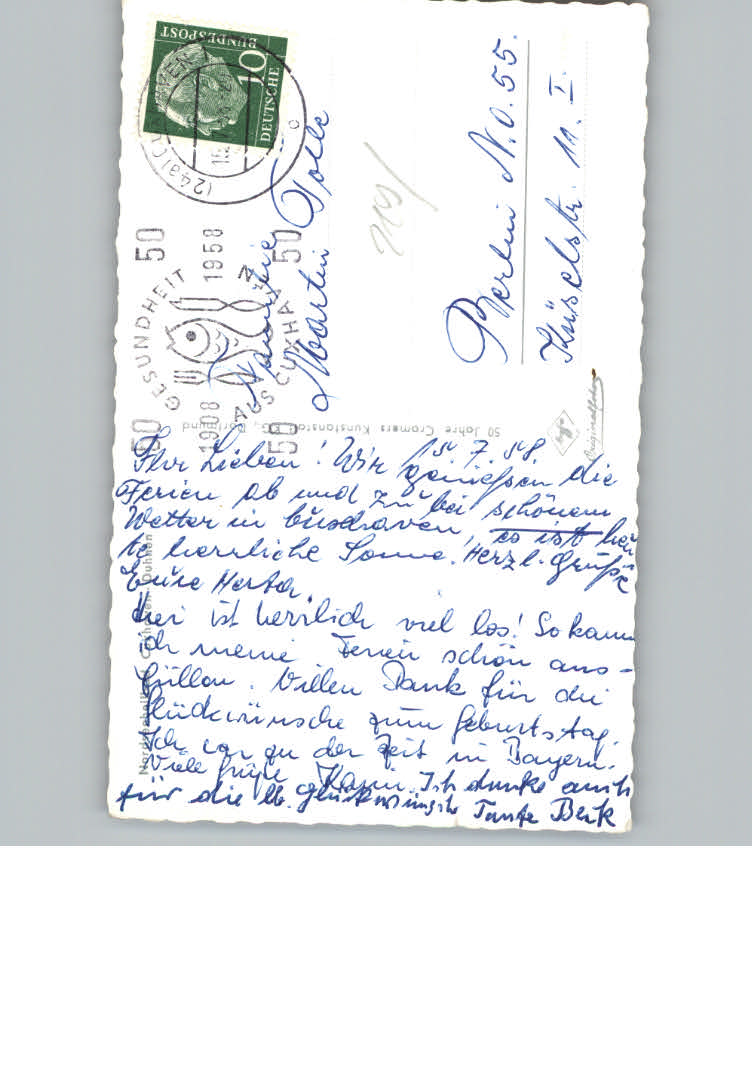 15.7.58
Ihr Lieben! Wir genießen die
Ferien ab und zu bei schönem
Wetter in Cuxhaven, es ist heu
te herrliche Sonne. Herzl. Grüße
Eure Herta.
hier ist herrlich viel los! So kann
ich meine Ferien schön aus-
füllen. Vielen Dank für die
Glückwünsche zum Geburtstag.
Ich war zu der Zeit in Bayern.
Viele Grüße Karin. Ich danke auch
für die lb. Glückwünsche Tante Berk
Familie
Martin Tolle
Berlin N.O. 55.
Küselstr. 11. I.
219/
DEUTSCHE
BUNDESPOST
10
(24a) CUXHAVEN
50 1908 1958 50
GESUNDHEIT
AUS CUXHAVEN
50 50
50 Jahre Cramers Kunstanstalt KG., Dortmund
Agfa
Originalfoto
Nordseeheilbad Cuxhaven-Duhnen